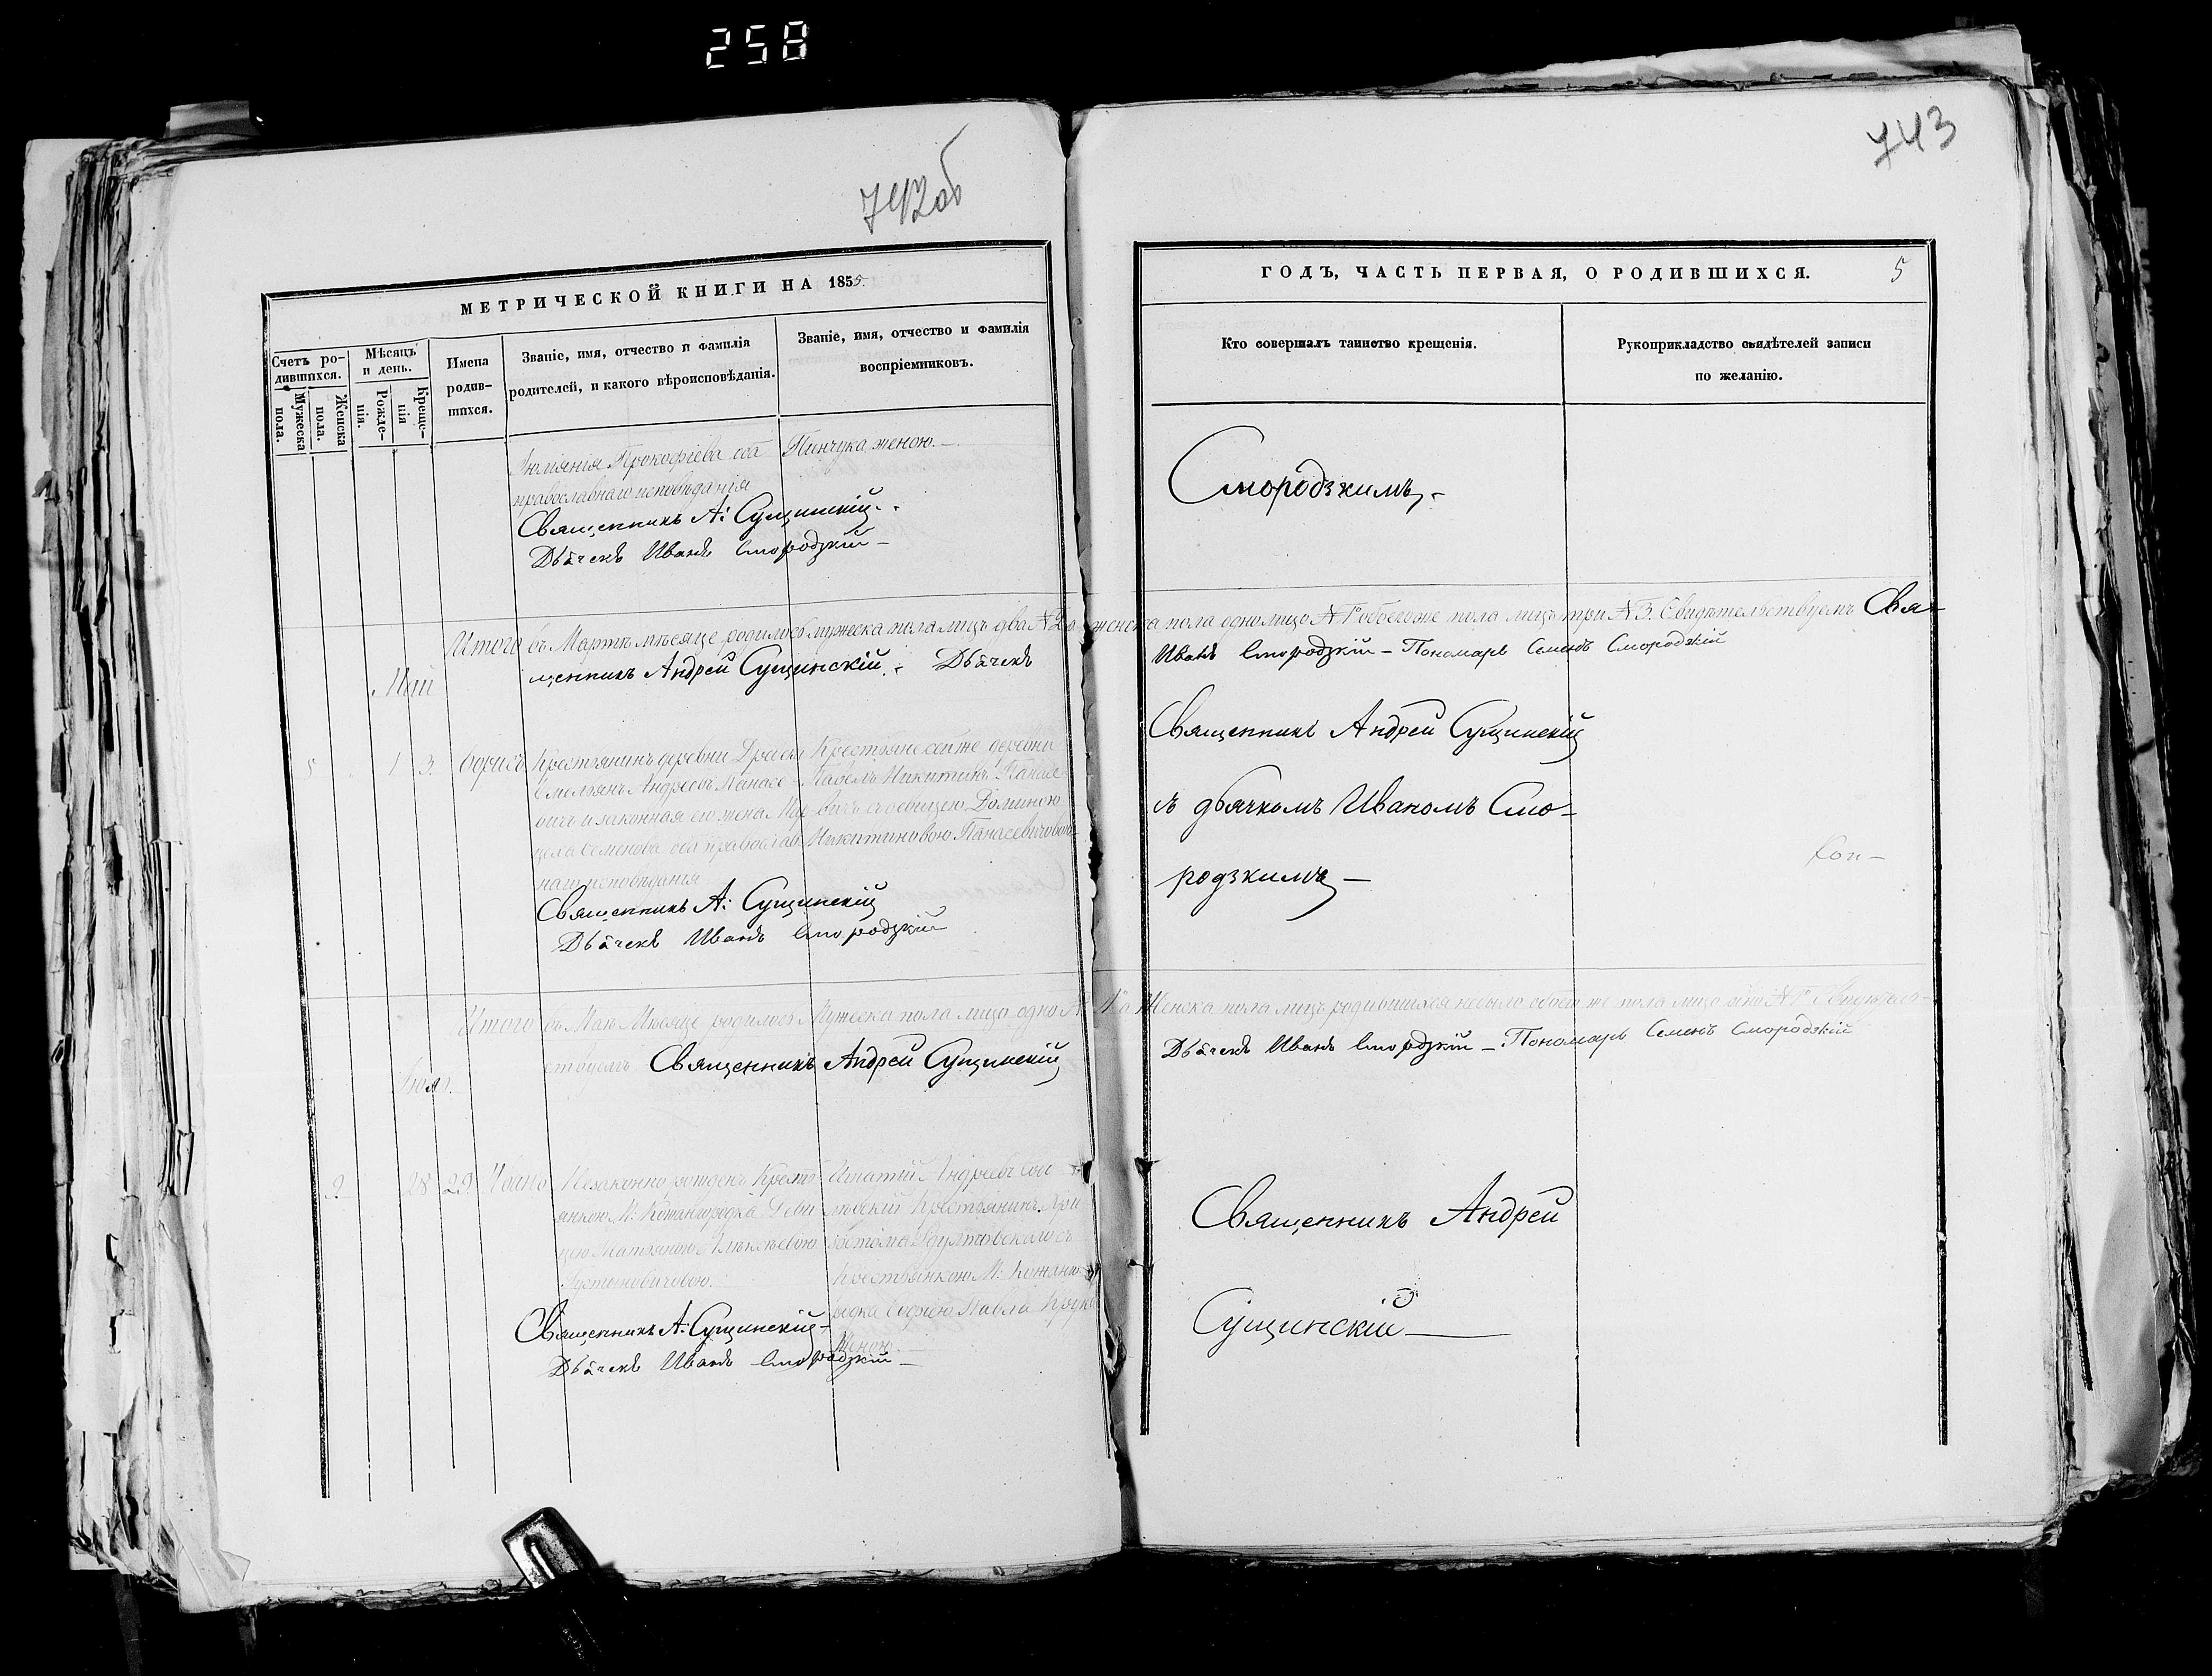 258
742об
743
МЕТРИЧЕСКОЙ КНИГИ НА 1855
ГОДЪ, ЧАСТЬ ПЕРВАЯ, О РОДИВШИХСЯ. 5
Счетъ родившихся.
Мужеска пола.
Женска пола.
Мѣсяцъ и день.
Рожденія.
Крещенія
Имена родившихся.
Званіе, имя, отчество и фамилія
родителей, и какого вѣроисповѣданія.
Званіе, имя, отчество и фамилія
воспріемниковъ.
Кто совершалъ таинство крещенія.
Рукоприкладство свидѣтелей записи
по желанію.
Прокофіева оба
православнаго исповѣданія
Священникъ А: Сущинскій
Дьячекъ Иванъ Смородзкій
Пинчука женою.
Смородзкимъ
Итого въ Мартѣ мѣсяце родилось мужеска пола лицъ два № 2 а женска пола одно лицо № 1 обоего же пола лицъ три № 3. Свидѣтельствуемъ Свя-
щенникъ Андрей Сущинскій. Дьячекъ
Иванъ Смородзкій – Пономарь Семенъ Смородзкій
Май
5 1 3. Борисъ
Крестьянинъ деревни
Андреевъ Панасе-
вичъ и законная его жена
Семенова оба православ-
наго исповѣданія
Священникъ А: Сущинскій
Дьячекъ Иванъ Смородзкій
Крестьяне сейже деревни
Павелъ Никитинъ Панасе-
вичъ съ девицею Домною
Никитиновою Панасевичовою
Священникъ Андрей Сущинскій
съ дьячкомъ Иваномъ Смо-
родзкимъ
Итого въ Маѣ Мѣсяце родилось Мужеска пола лицо одно № 1 а Женска пола лицъ родившихся небыло обоего же пола лицо одно № 1 Свидѣтель-
ствуемъ Священникъ Андрей Сущинскій
Дьячекъ Иванъ Смородзкій – Пономарь Семенъ Смородзкій
28 29
Незаконно рожденъ Кресть-
янкою М: Кожангородка Деви-
цею
Священникъ А: Сущинскій
Дьячекъ Иванъ Смородзкій
Игнатій Андреевъ
Крестьянинъ
съ
Крестьянкою М: Кожанго-
родка Софіею Павла
женою
Священникъ Андрей
Сущинскій